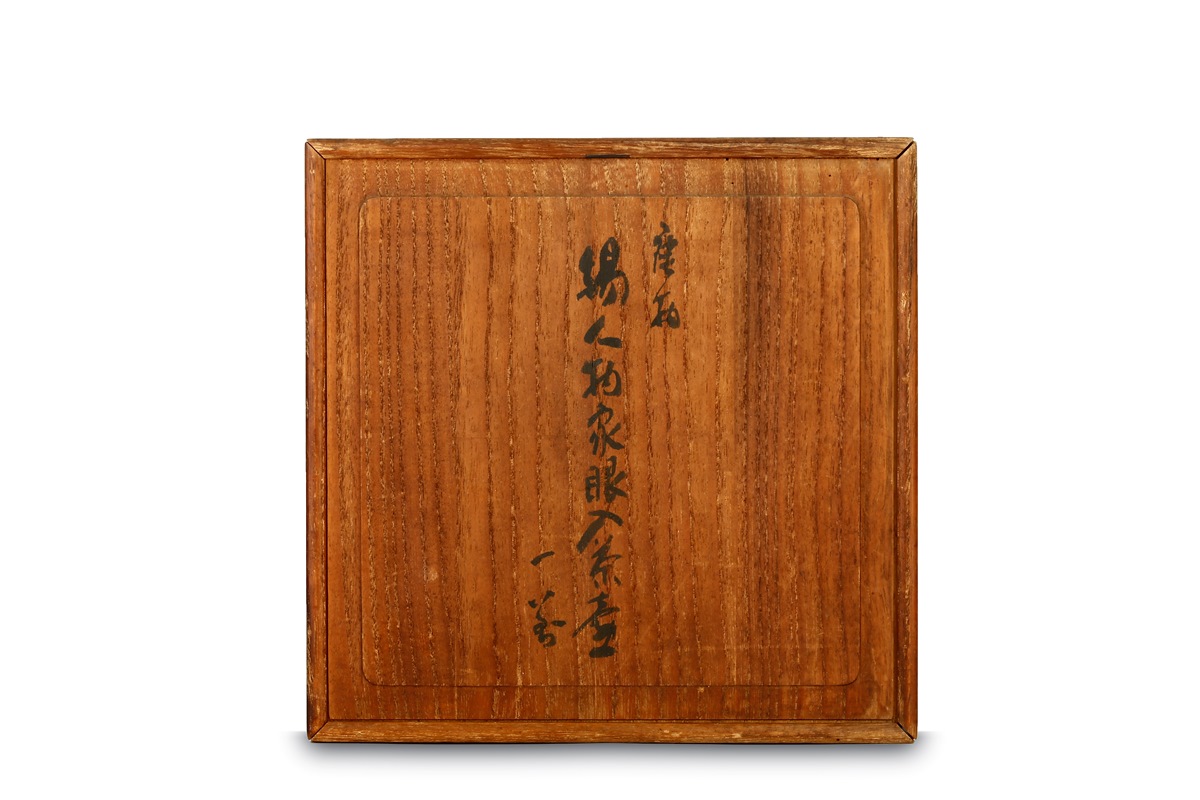 唐物
錫人物象眼入茶壺
一